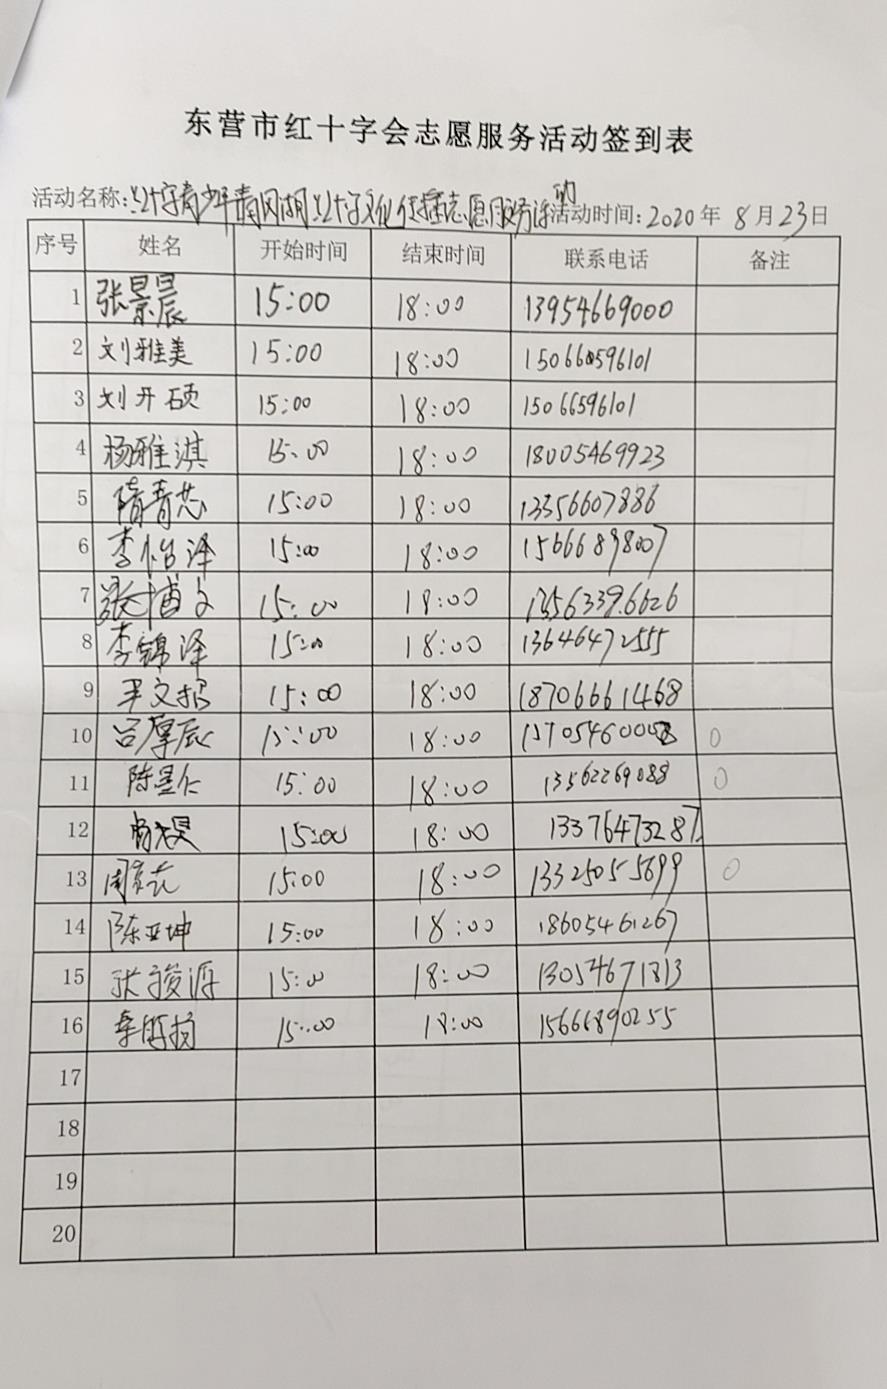 东营市红十字会志愿服务活动签到表
活动名称:红十字青少年清风湖红十字文化传播志愿服务活动 活动时间:2020年8月23日
序号 姓名 开始时间 结束时间 联系电话 备注
1 张景晨 15:00 18:00 13954669000
2 刘雅美 15:00 18:00 150660596101
3 刘开硕 15:00 18:00 15066596101
4 杨雅淇 15:00 18:00 18005469923
5 隋青芯 15:00 18:00 13356607886
6 李怡泽 15:00 18:00 15666898007
7 张博文 15:00 18:00 13563396626
8 李锦泽 15:00 18:00 13646472555
9 15:00 18:00 18706661468
10 吕厚辰 15:00 18:00 0
11 陈星仁 15:00 18:00 13562269088 0
12 15:00 18:00 13376473287
13 15:00 18:00 13325055699 0
14 陈亚坤 15:00 18:00 18605461267
15 张骏源 15:00 18:00 13054671813
16 15:00 18:00 15666890255
17
18
19
20